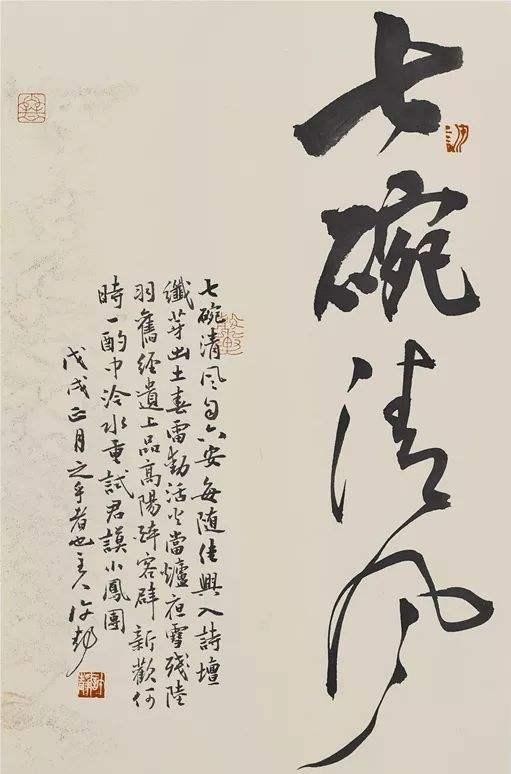 七碗清风
七碗清风自六安每随佳興入詩壇
纖芽出土春雷動活火當爐夜雪残陸
羽舊經遺上品高陽醉客辟新歡何
時一酌中泠水重試君謨小鳳團
戊戌正月之乎者也主人许静